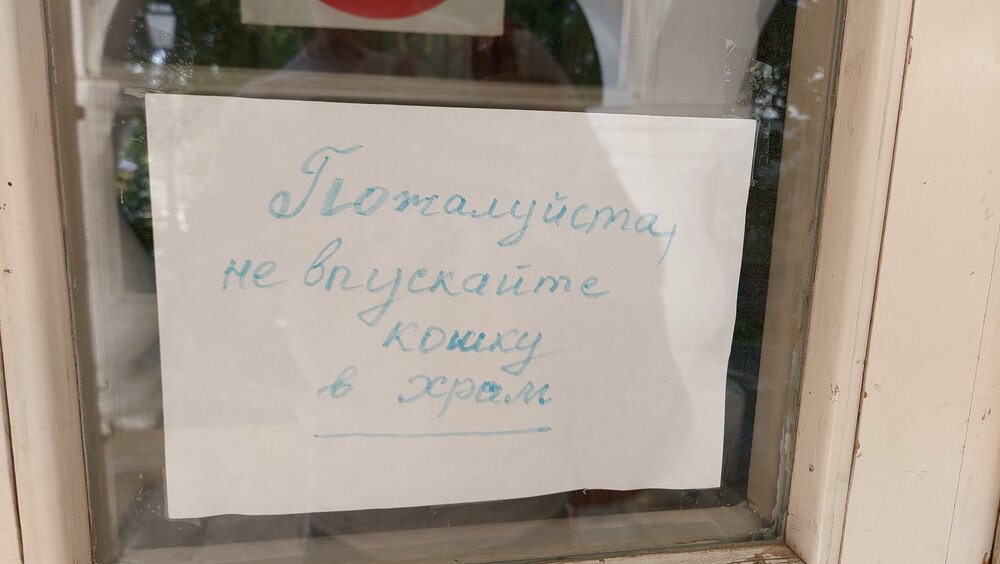 Пожалуйста,
не впускайте
кошку
в храм